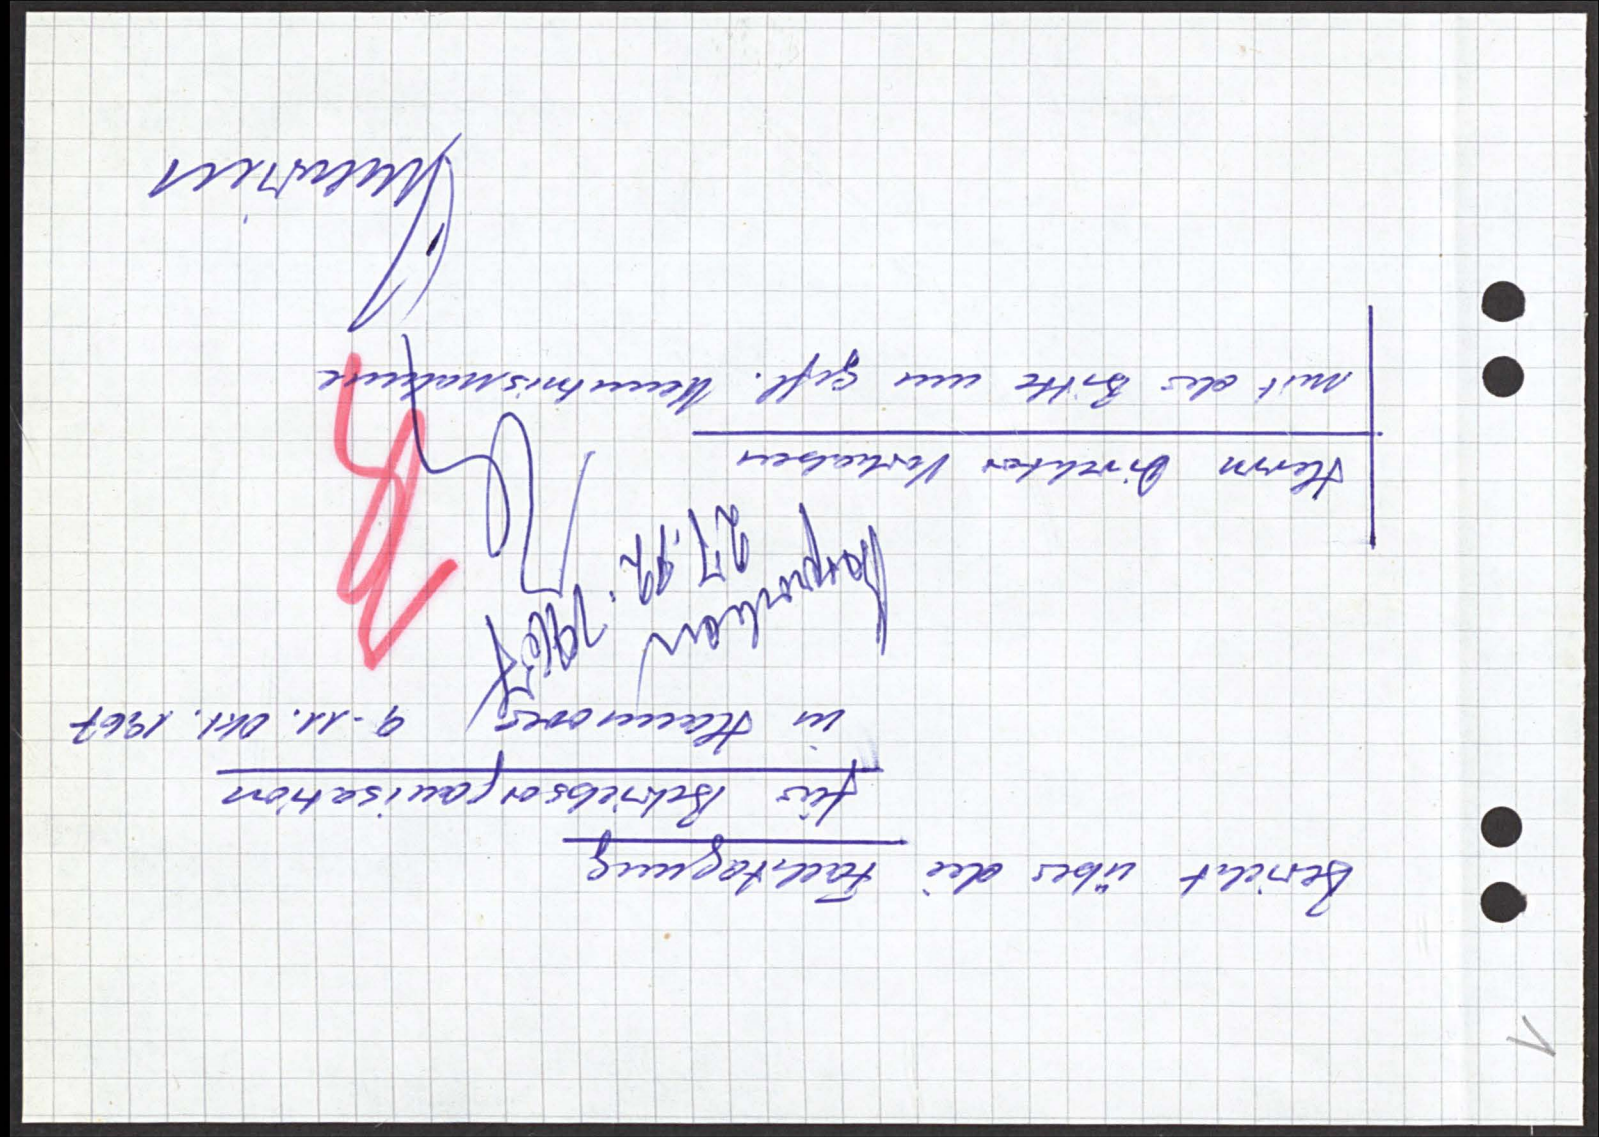 Bericht über die Fachtagung
für Betriebsorganisation
in Hannover 9-11. Okt. 1967
27.
1967
Herrn Direktor
mit der Bitte um gefl. Kenntnisnahme